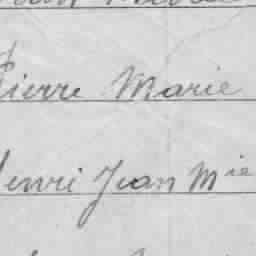 Pierre Marie
Henri Jean Mie